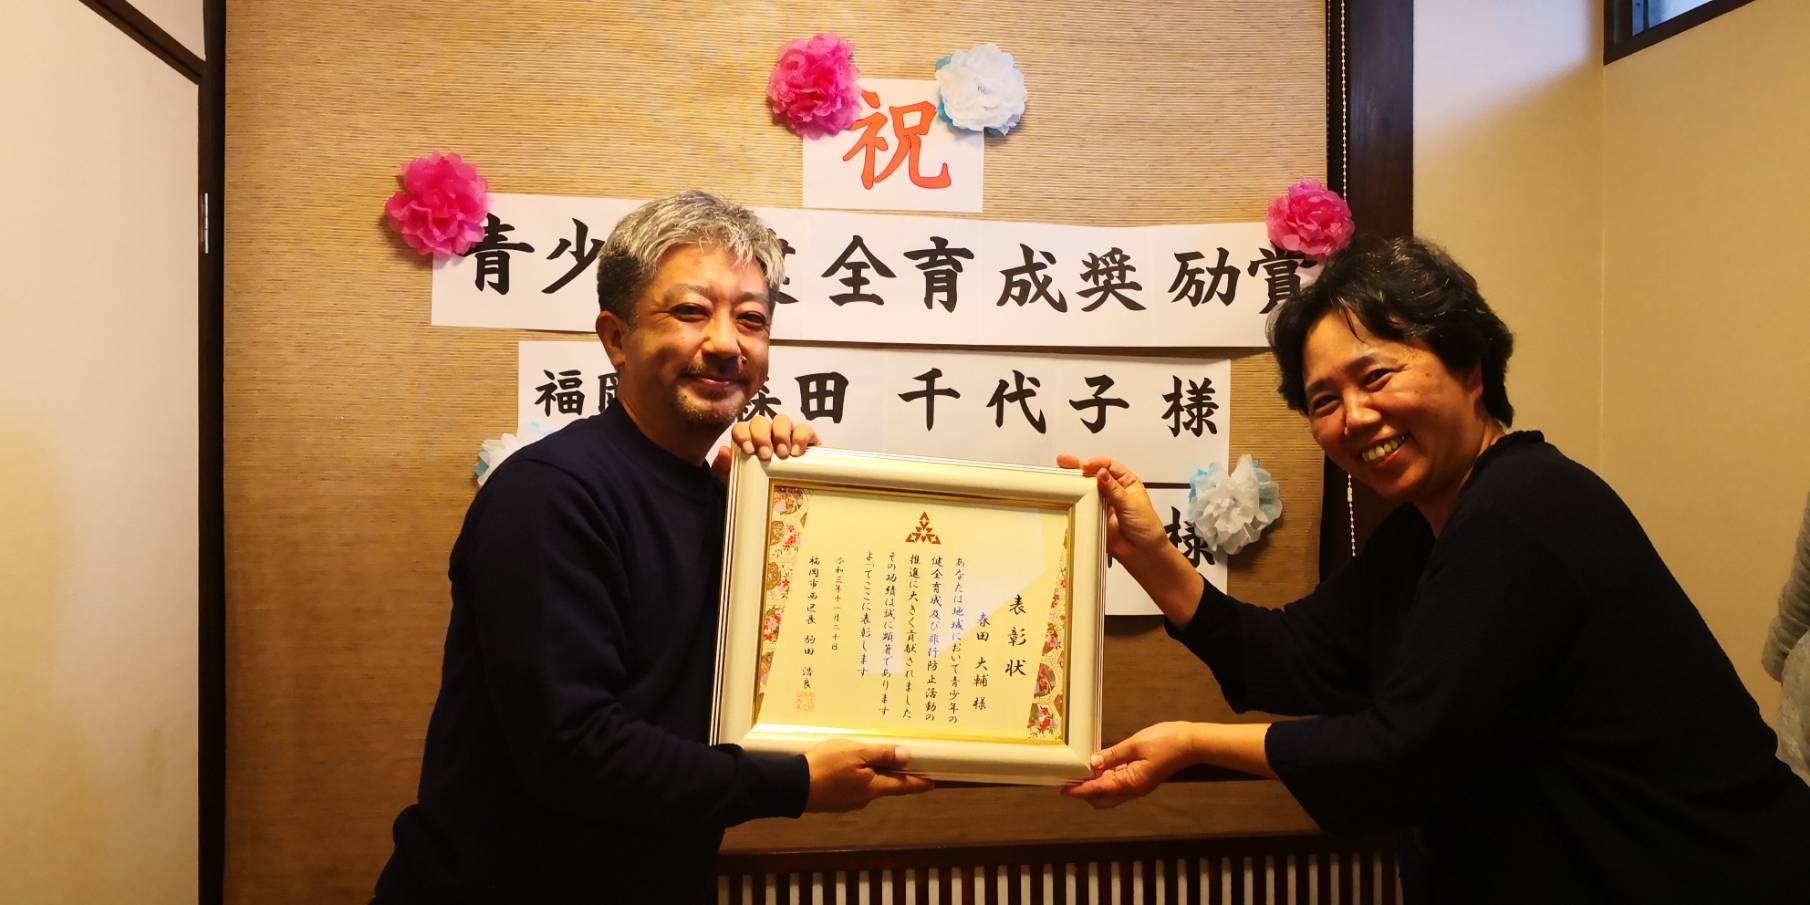 祝
青少 全育成奨励賞
福岡 森田 千代子 様
様
表彰状
春田 大輔 様
あなたは地域において青少年の
健全育成及び非行防止活動の
推進に大きく貢献されました
その功績は誠に顕著であります
よってここに表彰します
令和三年十一月二十日
福岡市西区長 駒田 浩良